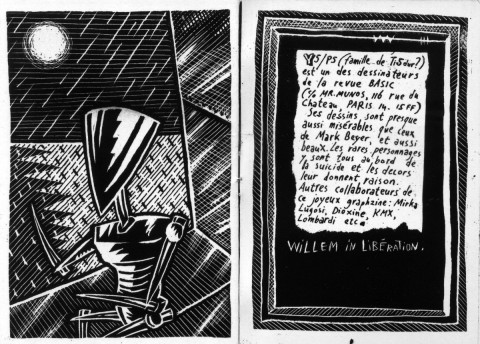 S/PS (famille de Ti5dur?)
est un des dessinateurs
de la revue BASIC
(c/o MR.MUNOS, 116 rue du
Chateau PARIS 14. 15 FF)
Ses dessins sont presque
aussi misérables que ceux
de Mark Beyer, et aussi
beaux. Les rares personnages
y sont tous au bord de
la suicide et les decors
leur donnent raison.
Autres collaborateurs de
ce joyeux graphzine: Mirka
Lugosi, Dioxine, KMX,
Lombardi etc.
WILLEM in LIBÉRATION.